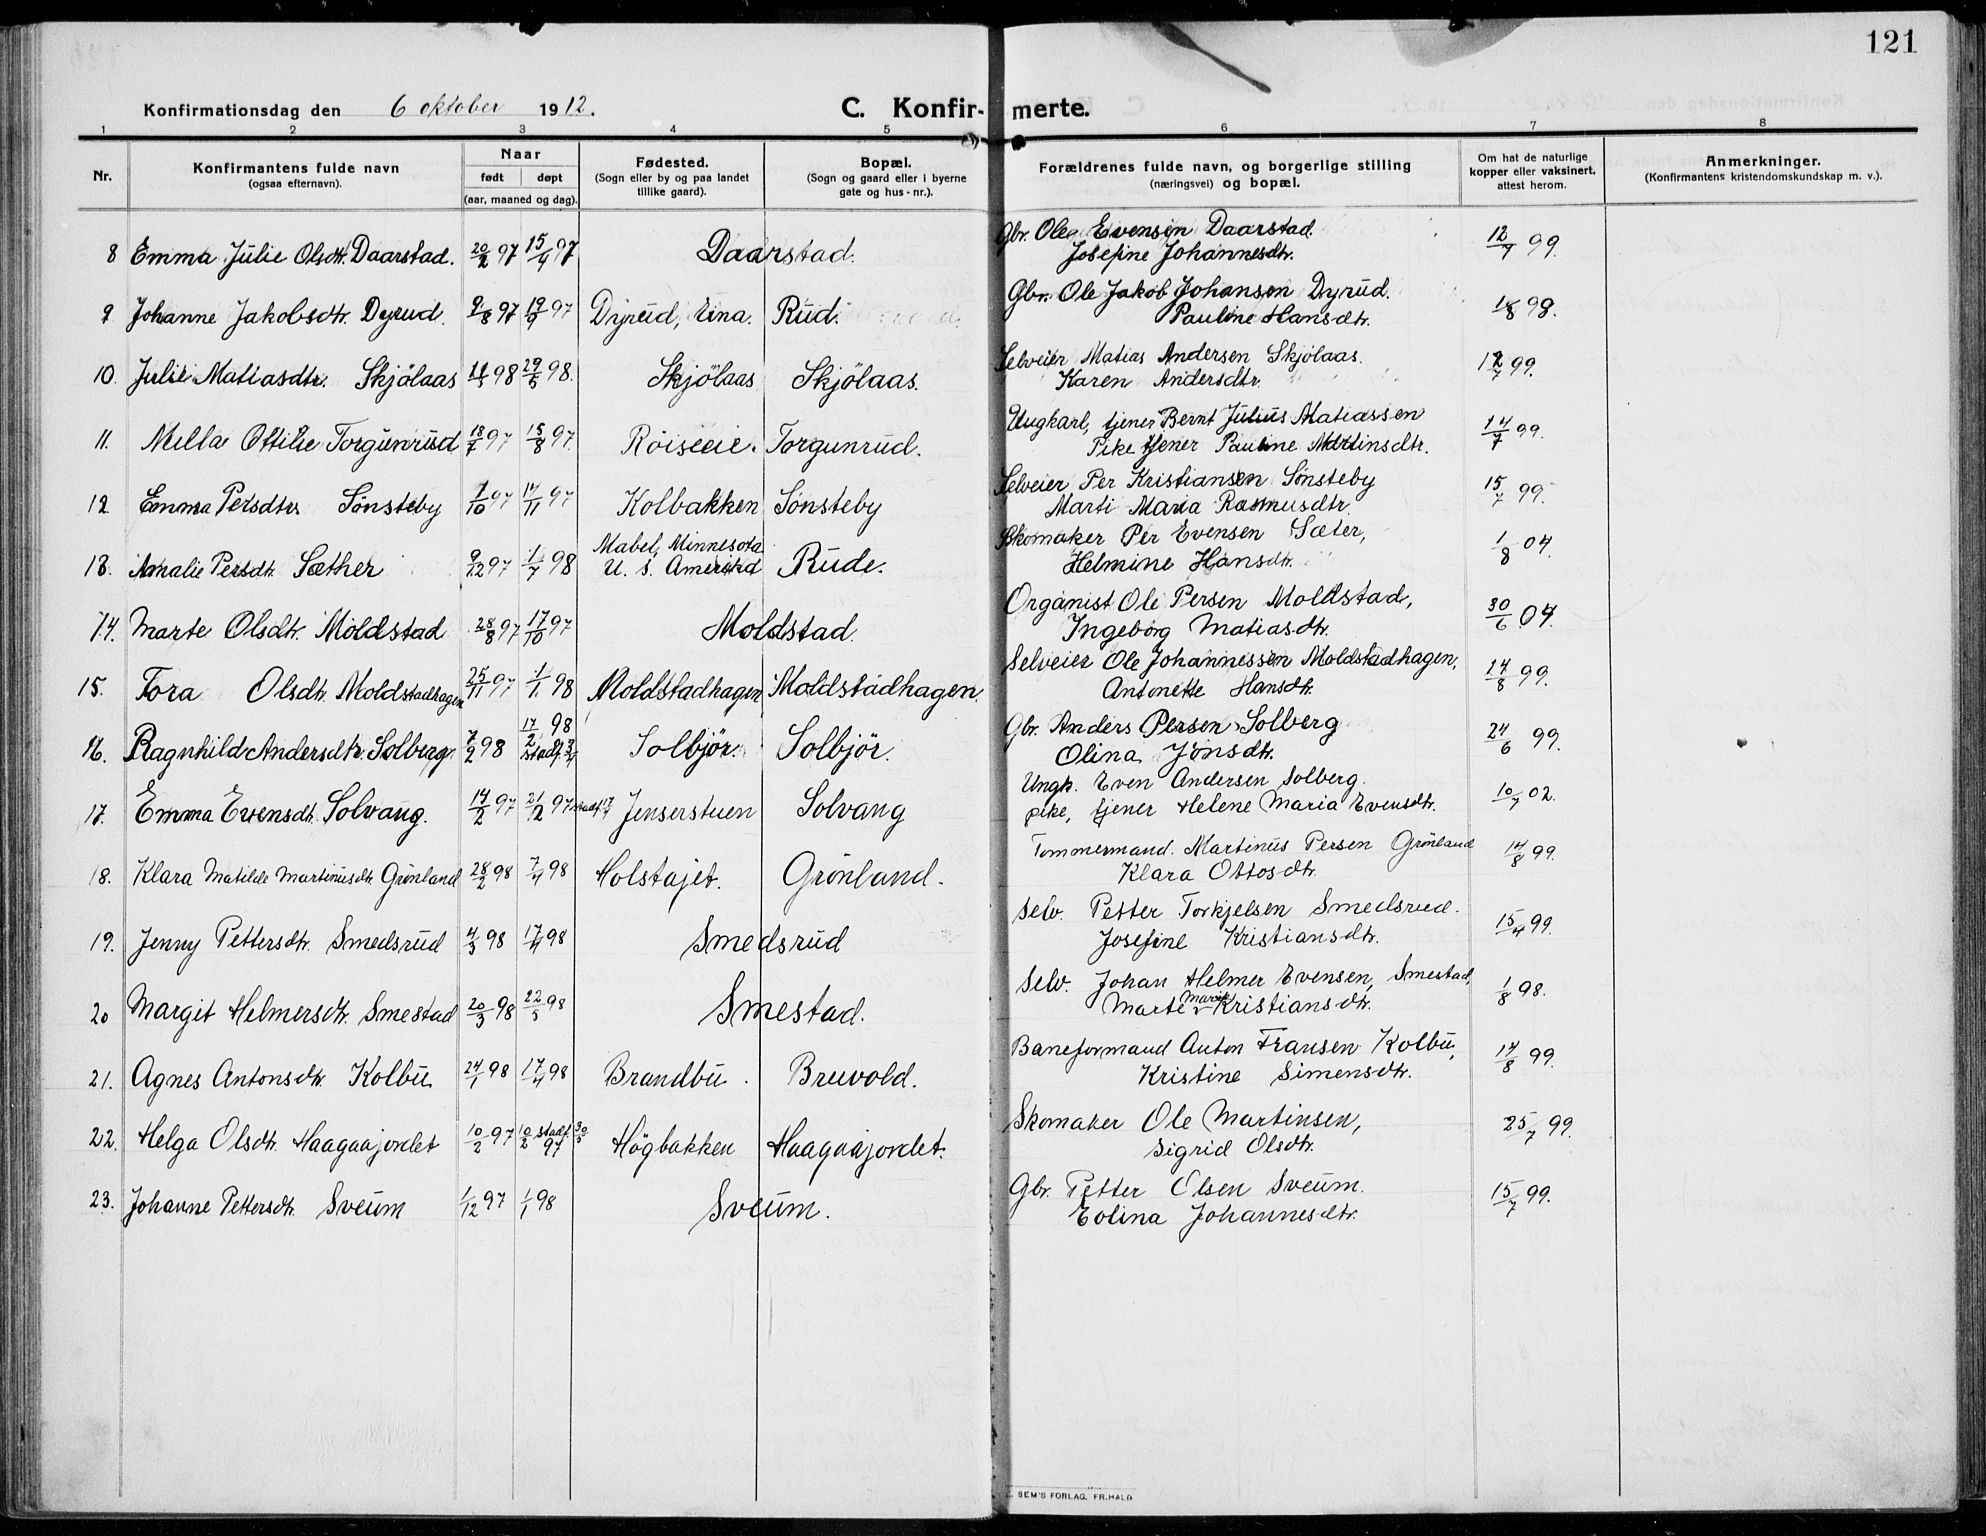 121
Konfirmationsdag den 6 oktober 1912.
C. Konfirmerte.
1 2 3 4 5 6 7 8
Nr.
Konfirmantens fulde navn
(ogsaa efternavn).
Naar
født døpt
(aar, maaned og dag).
Fødested.
(Sogn eller by og paa landet
tillike gaard).
Bopæl.
(Sogn og gaard eller i byerne
gate og hus-nr.).
Forældrenes fulde navn, og borgerlige stilling
(næringsvei) og bopæl.
Om hat de naturlige
kopper eller vaksinert,
attest herom.
Anmerkninger.
(Konfirmantens kristendomskundskap m. v.).
8 Emma Julie Olsdtr. Daarstad. 20/2 97 15/4 97 Daarstad. Gbr. Ole Evensen Daarstad. 12/7 99.
Josefine Johannesdtr.
9 Johanne Jakobsdtr. Dyrud. 9/8 97 19/9 97 Dyrud, Eina. Rud. Gbr. Ole Jakob Johansen Dyrud. 1/8 98.
Pauline Hansdtr.
10. Julie Matiasdtr. Skjölaas 98 29/5 98. Skjölaas Skjölaas. Selveier Matias Andersen Skjölaas. 12/7 99.
Karen Andersdtr.
11. Mella Ottilie Torgunrud 18/7 97 15/8 97 Roiseeie. Torgunrud. Ungkarl, tjener Bernt Julius Matiassen 14/7 99.
Pike tjener Pauline Martinsdtr.
12 Emma Persdtr. Sønsteby 7/10 97 14/11 97 Kolbakken Sønsteby Selveier Per Kristiansen Sønsteby 15/7 99.
Marti Maria Rasmusdtr.
13. Amalie Persdtr. Sæther 9/12 97 1/7 98 Mabel, Minnesota Rude. Skomaker Per Evensen Sæter, 1/8 04.
U. S. Amerika Helmine Hansdtr.
14. Marte Olsdtr. Moldstad 28/8 97 17/10 97 Moldstad. Organist Ole Persen Moldstad, 30/6 04.
Ingeborg Matiasdtr.
15. Tora Olsdtr. Moldstadhagen 25/11 97 1/1 98 Moldstadhagen Moldstadhagen. Selveier Ole Johannessen Moldstadhagen, 14/8 99.
Antonette Hansdtr.
16. Ragnhild Andersdtr. Solberg 7/2 98 17/2 98 stadf. Solbjör. Solbjör. Gbr. Anders Persen Solberg 24/6 99.
Olina Jönsdtr.
17. Emma Evensdtr. Solvang. 14/2 97 21/2 97 Jenserstuen Solvang Ungk. Even Andersen Solberg. 10/7 02.
pike, tjener Helene Maria Evensdtr.
18. Klara Matilde Martinusdtr. Grønland 28/2 98 7/4 98 Holstajet. Grønland. Tommermand. Martinus Persen Grønland 14/8 99.
Klara Ottosdtr.
19. Jenny Pettersdtr. Smedsrud 4/3 98 17/4 98 Smedsrud Selv. Petter Torkjelsen Smedsrud. 15/4 99.
Josefine Kristiansdtr.
20 Margit Helmersdtr. Smestad 20/3 98 22/5 98 Smestad. Selv. Johan Helmer Evensen, Smestad, 1/8 98.
Marte Marie Kristiansdtr.
21. Agnes Antonsdtr. Kolbu 24/1 98 17/4 98 Brandbu. Bruvold. Baneformand Anton Fransen Kolbu, 14/8 99.
Kristine Simensdtr.
22. Helga Olsdtr. Haagaajordet 10/2 97 10/2 97 stadf. 30/5 Högbakken Haagaajordet. Skomaker Ole Martinsen, 25/7 99.
Sigrid Olsdtr.
23. Johanne Pettersdtr. Sveum 1/12 97 1/1 98 Sveum. Gbr. Petter Olsen Sveum. 15/7 99.
Eolina Johannesdtr.
SEM'S FORLAG, FR.HALD